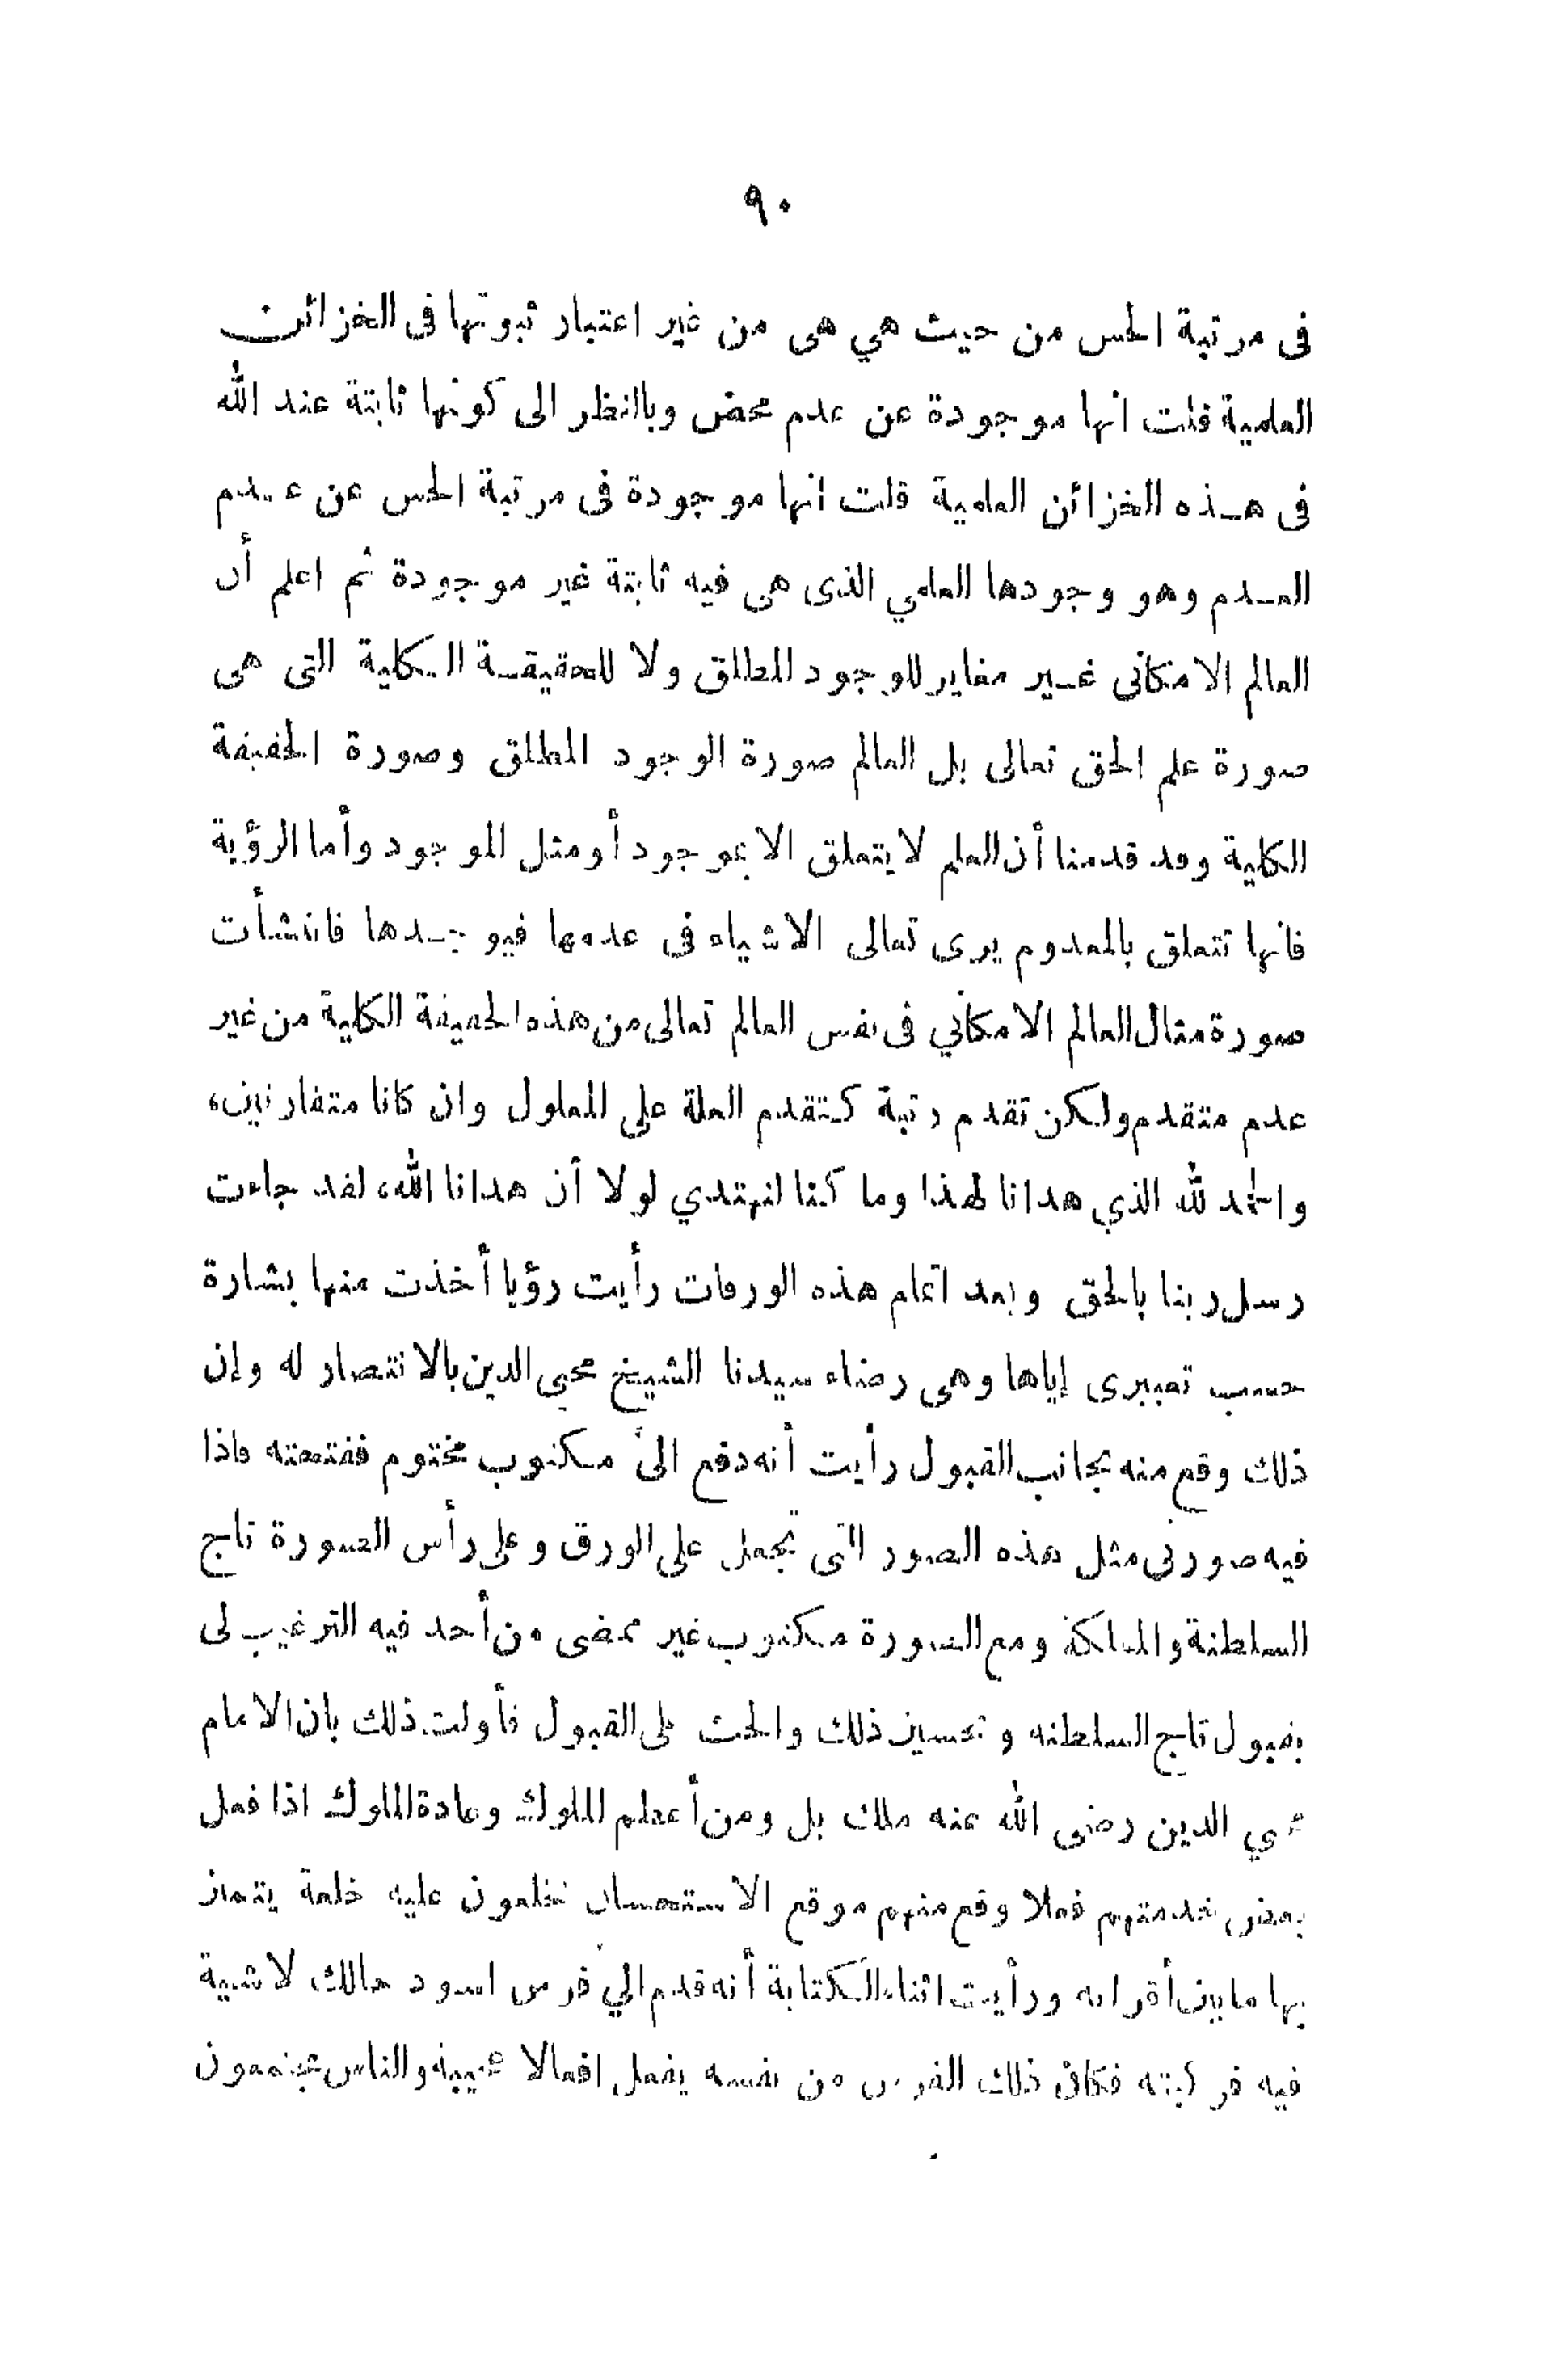 ٩٠
فى مرتبة الحس من حيث هي هى من غير اعتبار ثبوتها فى الخزائن
العلمية قلت انها موجودة عن عدم محض وبالنظر الى كونها ثابتة عند الله
فى هذه الخزائن العلمية قلت انها موجودة فى مرتبة الحس عن عدم
العدم وهو وجودها العلمي الذى هى فيه ثابتة غير موجودة ثم اعلم أن
العالم الامكانى غير مغاير للوجود المطلق ولا للحقيقة الكلية التى هى
صورة علم الحق تعالى بل العالم صورة الوجود المطلق وصورة الحقيقة
الكلية وقد قدمنا أن العلم لا يتعلق الا بموجود أو مثل الموجود وأما الرؤية
فانها تتعلق بالمعدوم يرى تعالى الاشياء فى عدمها فيوجدها فانتشأت
صورة مثال العالم الامكاني فى نفس العالم تعالى من هذه الحقيقة الكلية من غير
عدم متقدم ولكن تقدم رتبة كتقدم العلة على المعلول وان كانا متقارنين،
والحمد لله الذي هدانا لهذا وما كنا لنهتدي لولا أن هدانا الله، لقد جاءت
رسل ربنا بالحق وبعد اتمام هذه الورقات رأيت رؤيا أخذت منها بشارة
حسب تعبيرى إياها وهى رضاء سيدنا الشيخ محيي الدين بالانتصار له وإن
ذلك وقع منه بجانب القبول رأيت أنه دفع الىّ مكتوب مختوم ففتحته فاذا
فيه صورتى مثل هذه الصور التى تجعل على الورق وعلى رأس الصورة تاج
السلطنة والملكة ومع الصورة مكتوب غير ممضى من أحد فيه الترغيب لى
بقبول تاج السلطنه وتحسين ذلك والحث على القبول فأولت ذلك بان الامام
محي الدين رضى الله عنه ملك بل ومن أعظم الملوك وعادة الملوك اذا فعل
بعض خدمتهم فعلا وقع منهم موقع الاستحسان يخلعون عليه خلعة يتماز
بها ما بين أقرانه ورأيت اثناء الكتابة أنه قدم اليّ فرس اسود حالك لا شية
فيه فركبته فكان ذلك الفرس من نفسه يفعل افعالا عجيبة والناس مجتمعون